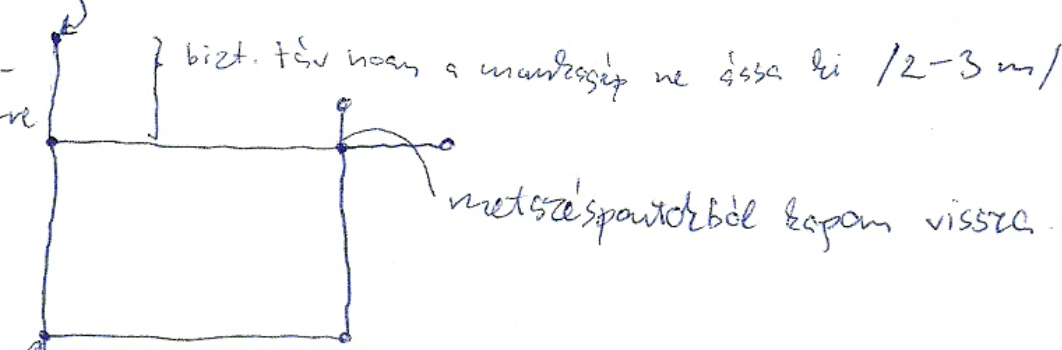 bizt. táv hogy a munkagép ne ássa ki /2-3 m/
-re
metszéspontokból kapom vissza.